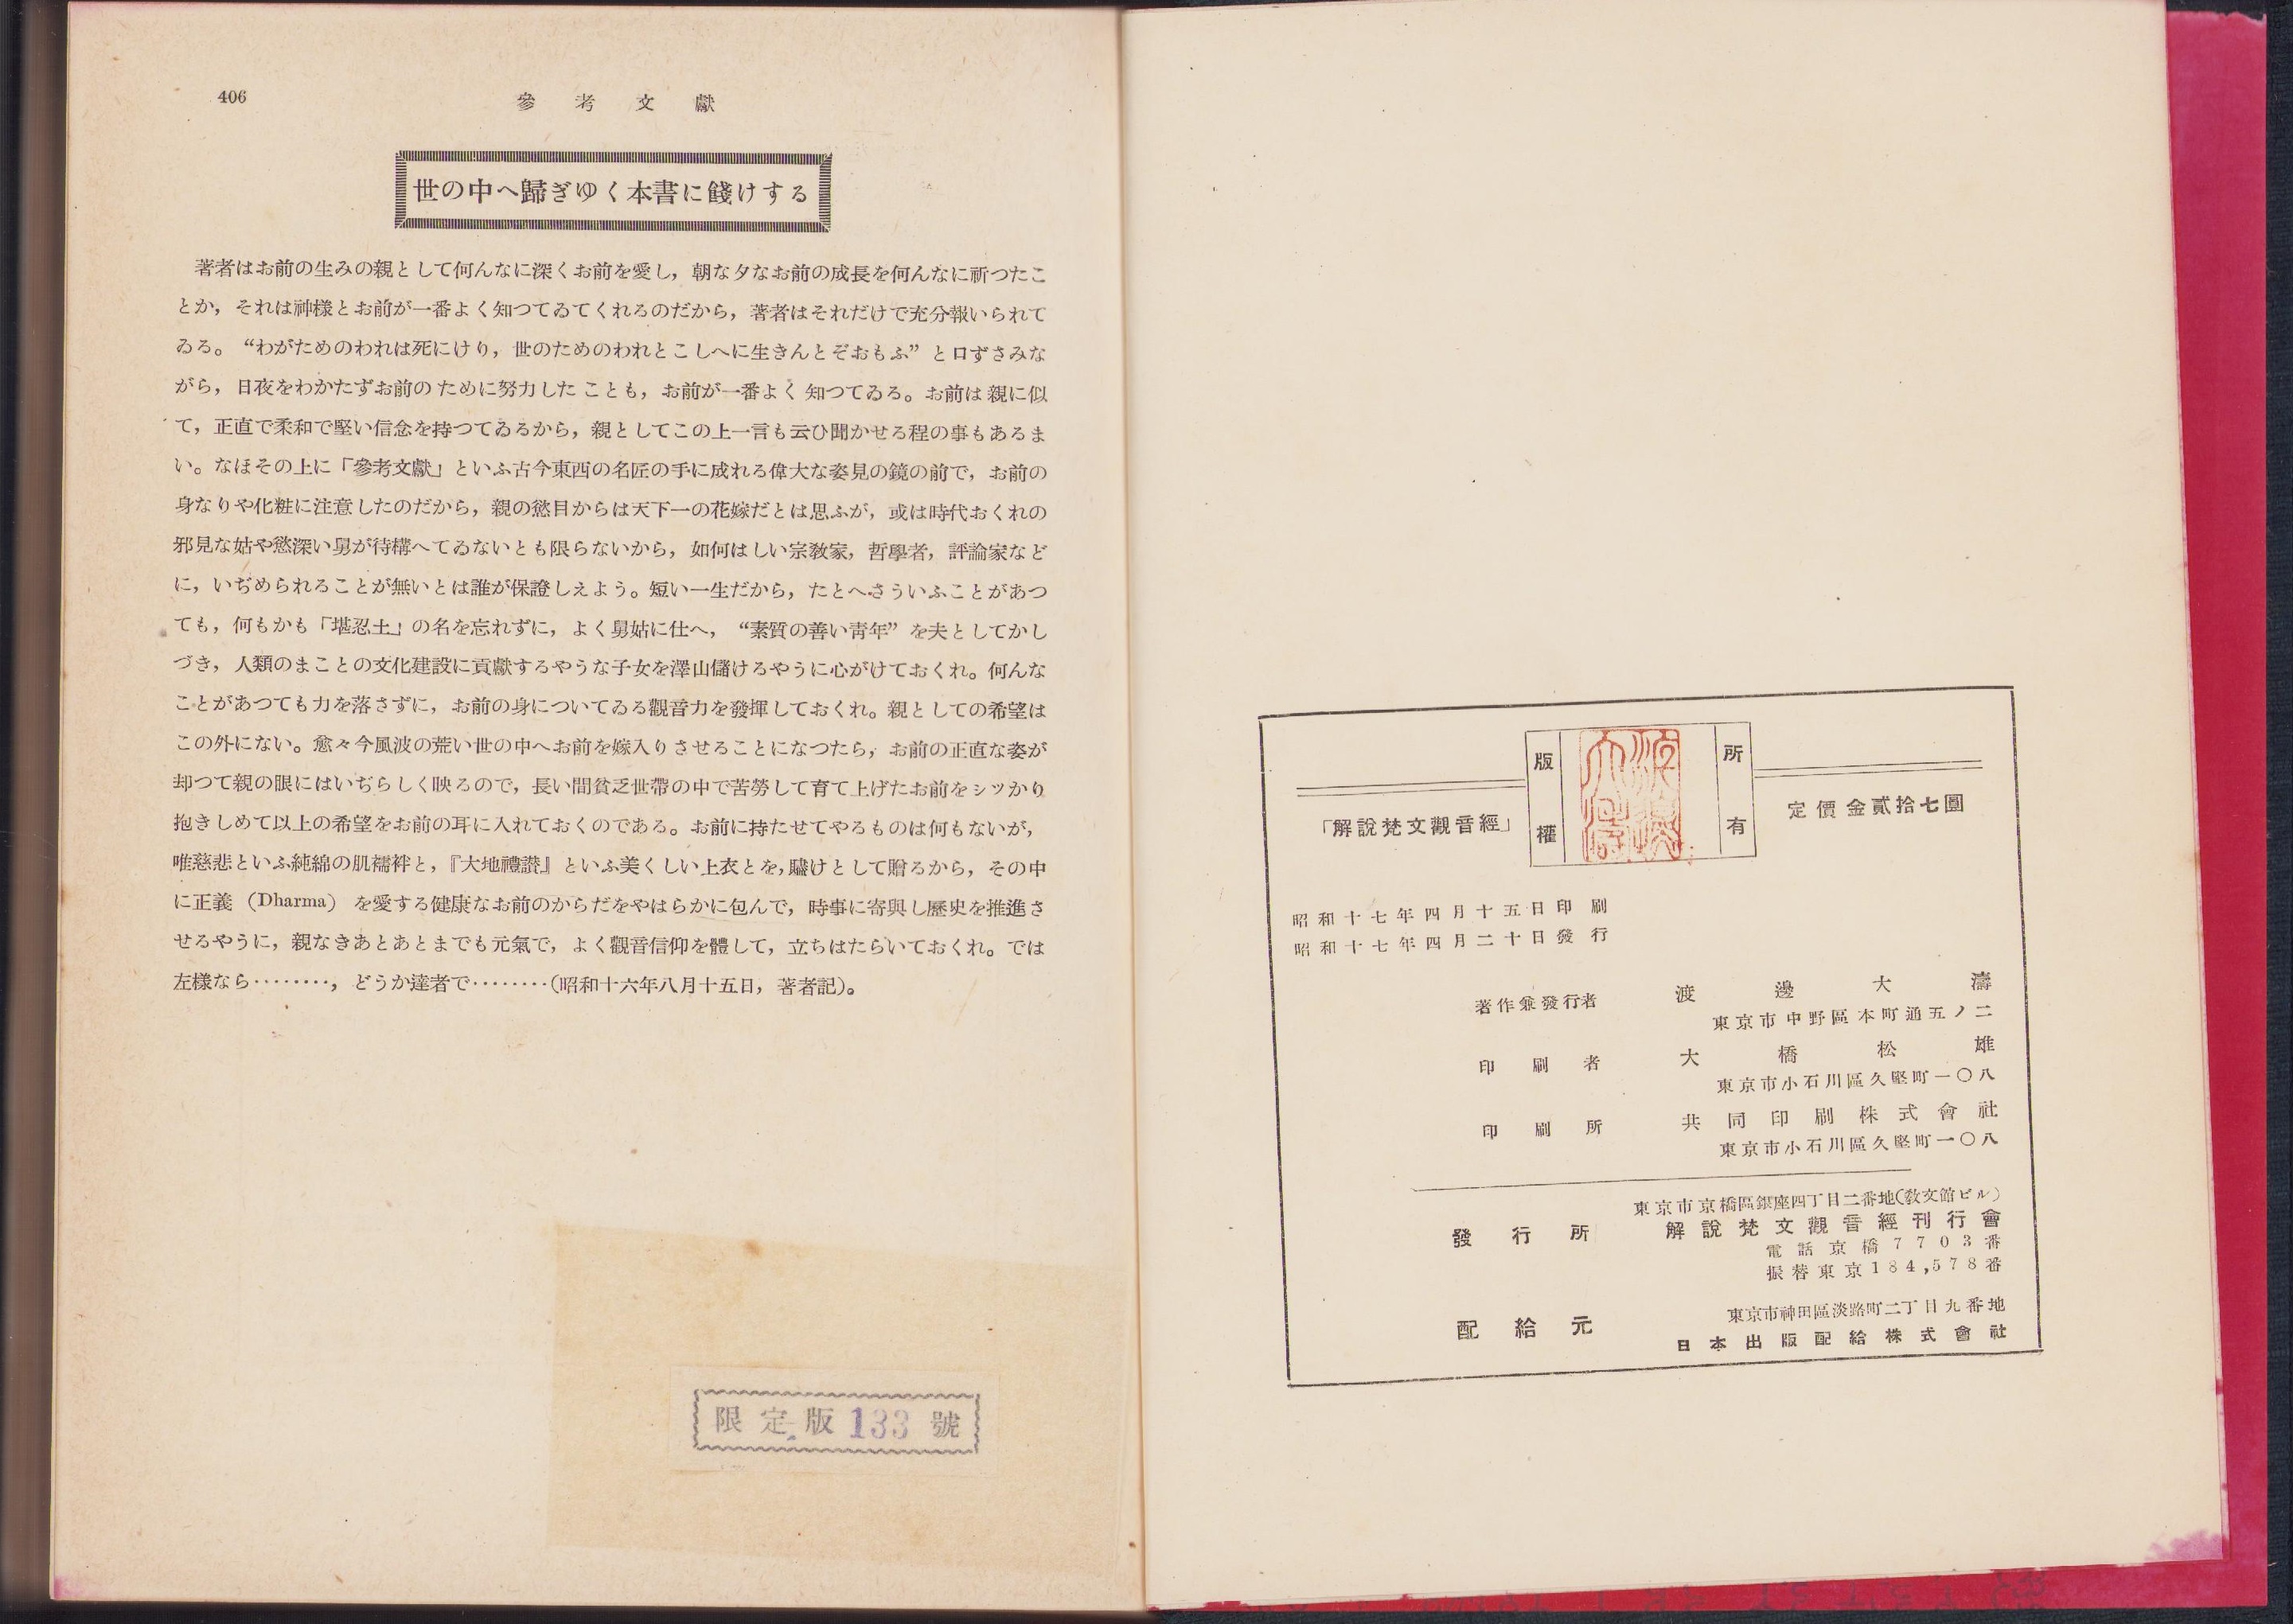 406
參考文獻
世の中へ歸ぎゆく本書に餞けする
著者はお前の生みの親として何んなに深くお前を愛し，朝な夕なお前の成長を何んなに祈つたこ
とか，それは神様とお前が一番よく知つてゐてくれるのだから，著者はそれだけで充分報いられて
ゐる。“わがためのわれは死にけり，世のためのわれとこしへに生きんとぞおもふ”と口ずさみな
がら，日夜をわかたずお前のために努力したことも，お前が一番よく知つてゐる。お前は親に似
て，正直で柔和で堅い信念を持つてゐるから，親としてこの上一言も云ひ聞かせる程の事もあるま
い。なほその上に「參考文獻」といふ古今東西の名匠の手に成れる偉大な姿見の鏡の前で，お前の
身なりや化粧に注意したのだから，親の慾目からは天下一の花嫁だとは思ふが，或は時代おくれの
邪見な姑や慾深い舅が待構へてゐないとも限らないから，如何はしい宗敎家，哲學者，評論家など
に，いぢめられることが無いとは誰が保證しえよう。短い一生だから，たとへさういふことがあつ
ても，何もかも「堪忍土」の名を忘れずに，よく舅姑に仕へ，“素質の善い靑年”を夫としてかし
づき，人類のまことの文化建設に貢獻するやうな子女を澤山儲けるやうに心がけておくれ。何んな
ことがあつても力を落さずに，お前の身についてゐる觀音力を發揮しておくれ。親としての希望は
この外にない。愈々今風波の荒い世の中へお前を嫁入りさせることになつたら，お前の正直な姿が
却つて親の眼にはいぢらしく映るので，長い間貧乏世帶の中で苦勞して育て上げたお前をシッかり
抱きしめて以上の希望をお前の耳に入れておくのである。お前に持たせてやるものは何もないが，
唯慈悲といふ純綿の肌襦袢と，『大地禮讃』といふ美くしい上衣とを，贐けとして贈るから，その中
に正義（Dharma）を愛する健康なお前のからだをやはらかに包んで，時事に寄與し歷史を推進さ
せるやうに，親なきあとあとまでも元氣で，よく觀音信仰を體して，立ちはたらいておくれ。では
左様なら………，どうか達者で………（昭和十六年八月十五日，著者記）。
限定版133號
版權所有
「解說梵文觀音經」
定價金貳拾七圓
昭和十七年四月十五日印刷
昭和十七年四月二十日發行
著作兼發行者 渡邊大濤
東京市中野區本町通五ノ二
印刷者 大橋松雄
東京市小石川區久堅町一〇八
印刷所 共同印刷株式會社
東京市小石川區久堅町一〇八
東京市京橋區銀座四丁目二番地（敎文館ビル）
發行所 解說梵文觀音經刊行會
電話京橋7703番
振替東京184,578番
東京市神田區淡路町二丁目九番地
配給元 日本出版配給株式會社